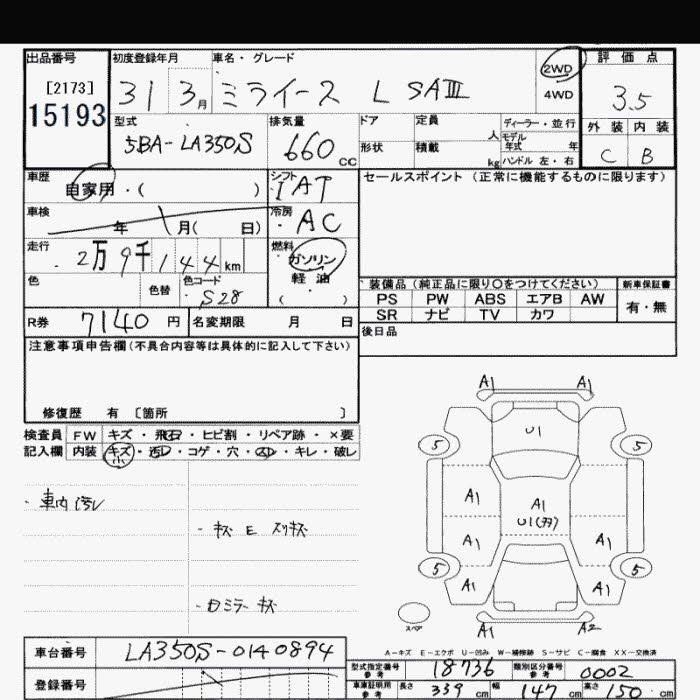 出品番号 初度登録年月 車名・グレード 2WD 評価点
[2173] 31 3月 ミライース L SAIII 4WD 3.5
15193
型式 5BA-LA350S 排気量 660 cc ドア 定員 人 ディーラー・並行 外装 内装
形状 積載 kg モデル年式 年 ハンドル 左・右 C B
車歴 自家用・( ) シフト IAT セールスポイント (正常に機能するものに限ります)
車検 年 月( 日) 冷房 AC
走行 2万9千144km 燃料 ガソリン
色 色替 色コード S28 軽油 ( )
装備品 (純正品に限り○をつけてください) 新車保証書
PS PW ABS エアB AW 有・無
SR ナビ TV カワ
R券 7140円 名変期限 月 日 後日品
注意事項申告欄(不具合内容等は具体的に記入して下さい)
修復歴 有 〔箇所 〕
検査員 FW キズ・飛石・ヒビ割・リペア跡・×要
記入欄 内装 キズ・汚レ・コゲ・穴・凹・キレ・破レ
小
・車内汚レ
・キズ E スリキズ
・Dミラーキズ
A1 A1
U1
5 5
A1 A1
U1(刃)
A1 A1
5 5
A1 A1
スペア A1 A2
A-キズ E-エクボ U-凹み W-補修跡 S-サビ C-腐食 XX-交換済
車台番号 LA350S-0140894
登録番号
型式指定番号 参考 18736 類別区分番号 参考 0002
車庫証明用 参考 長さ 339 cm 幅 147 cm 高さ 150 cm